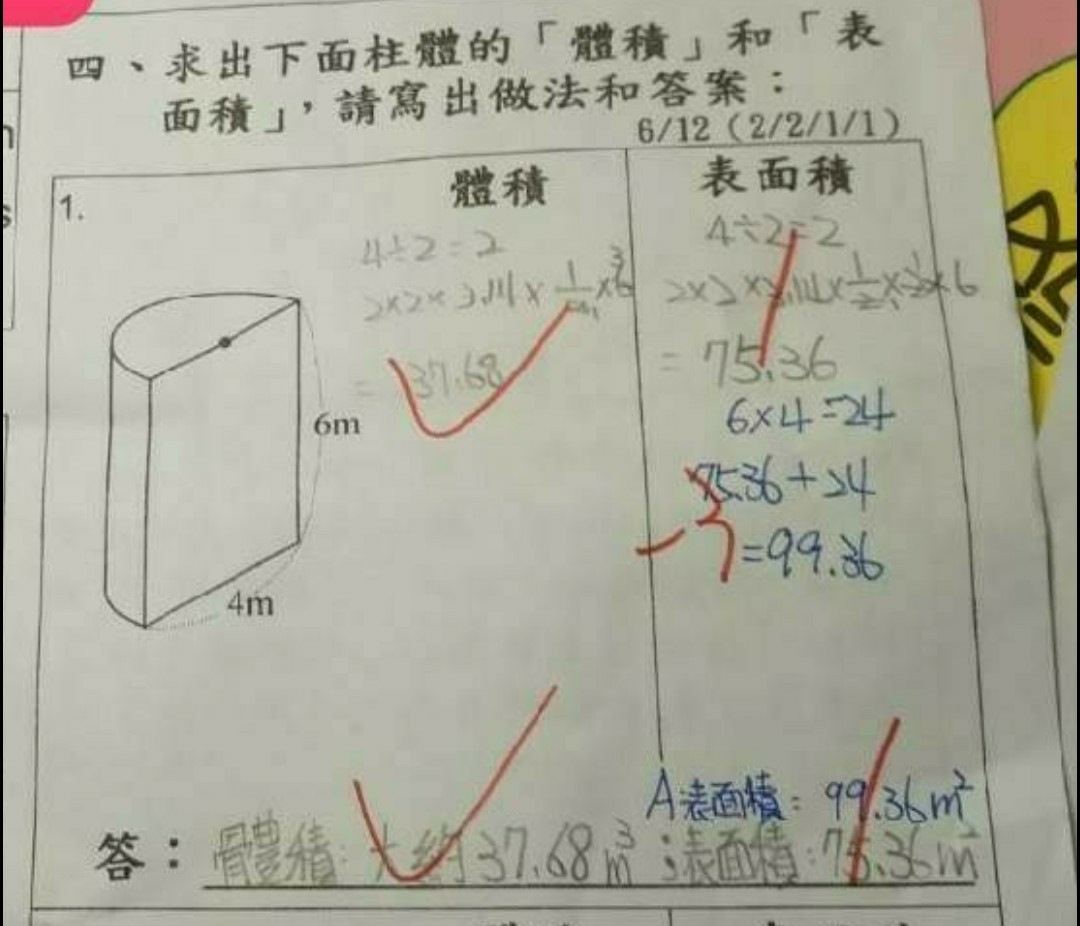 四、求出下面柱體的「體積」和「表
面積」，請寫出做法和答案：
6/12（2/2/1/1）
1.
體積
4÷2=2
2×2×3.14×1/2×6 3
=37.68
6m
4m
表面積
4÷2=2
2×2×3.14×1/2×1/2×6
=75.36
6×4=24
75.36+24
=99.36
-3
A表面積：99.36m²
答：體積：大約37.68m³；表面積：75.36m²